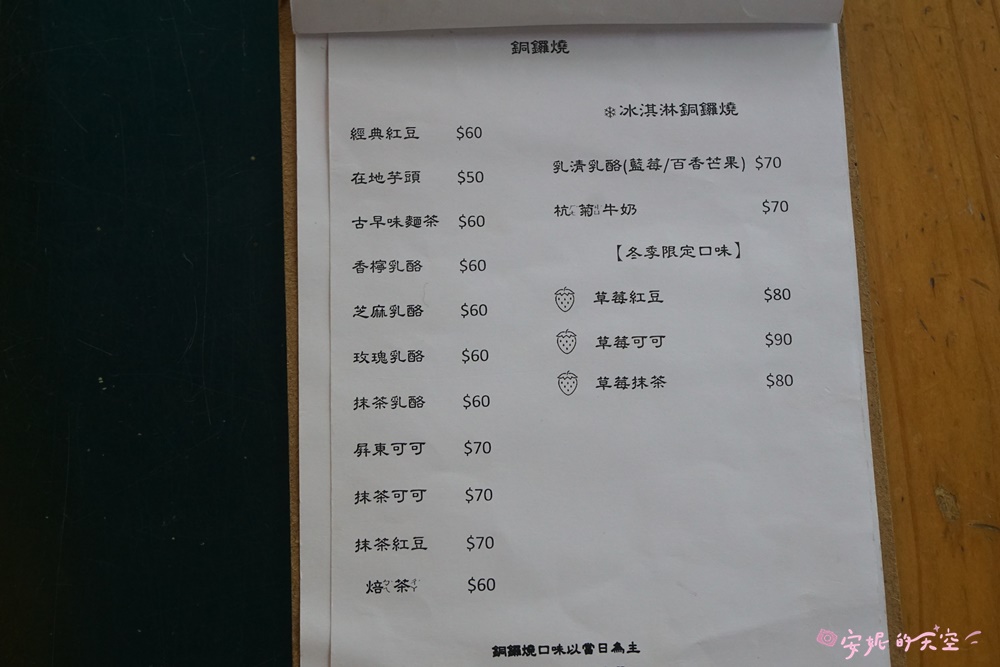 銅鑼燒
經典紅豆 $60
在地芋頭 $50
古早味麵茶 $60
香檸乳酪 $60
芝麻乳酪 $60
玫瑰乳酪 $60
抹茶乳酪 $60
屏東可可 $70
抹茶可可 $70
抹茶紅豆 $70
焙茶 $60
❄冰淇淋銅鑼燒
乳清乳酪(藍莓/百香芒果) $70
杭菊牛奶 $70
【冬季限定口味】
草莓紅豆 $80
草莓可可 $90
草莓抹茶 $80
銅鑼燒口味以當日為主
安妮的天空